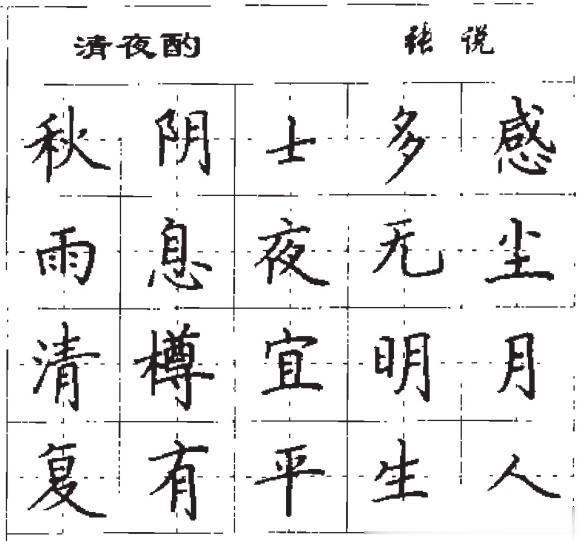 清夜酌 张说
秋阴士多感
雨息夜无尘
清樽宜明月
复有平生人